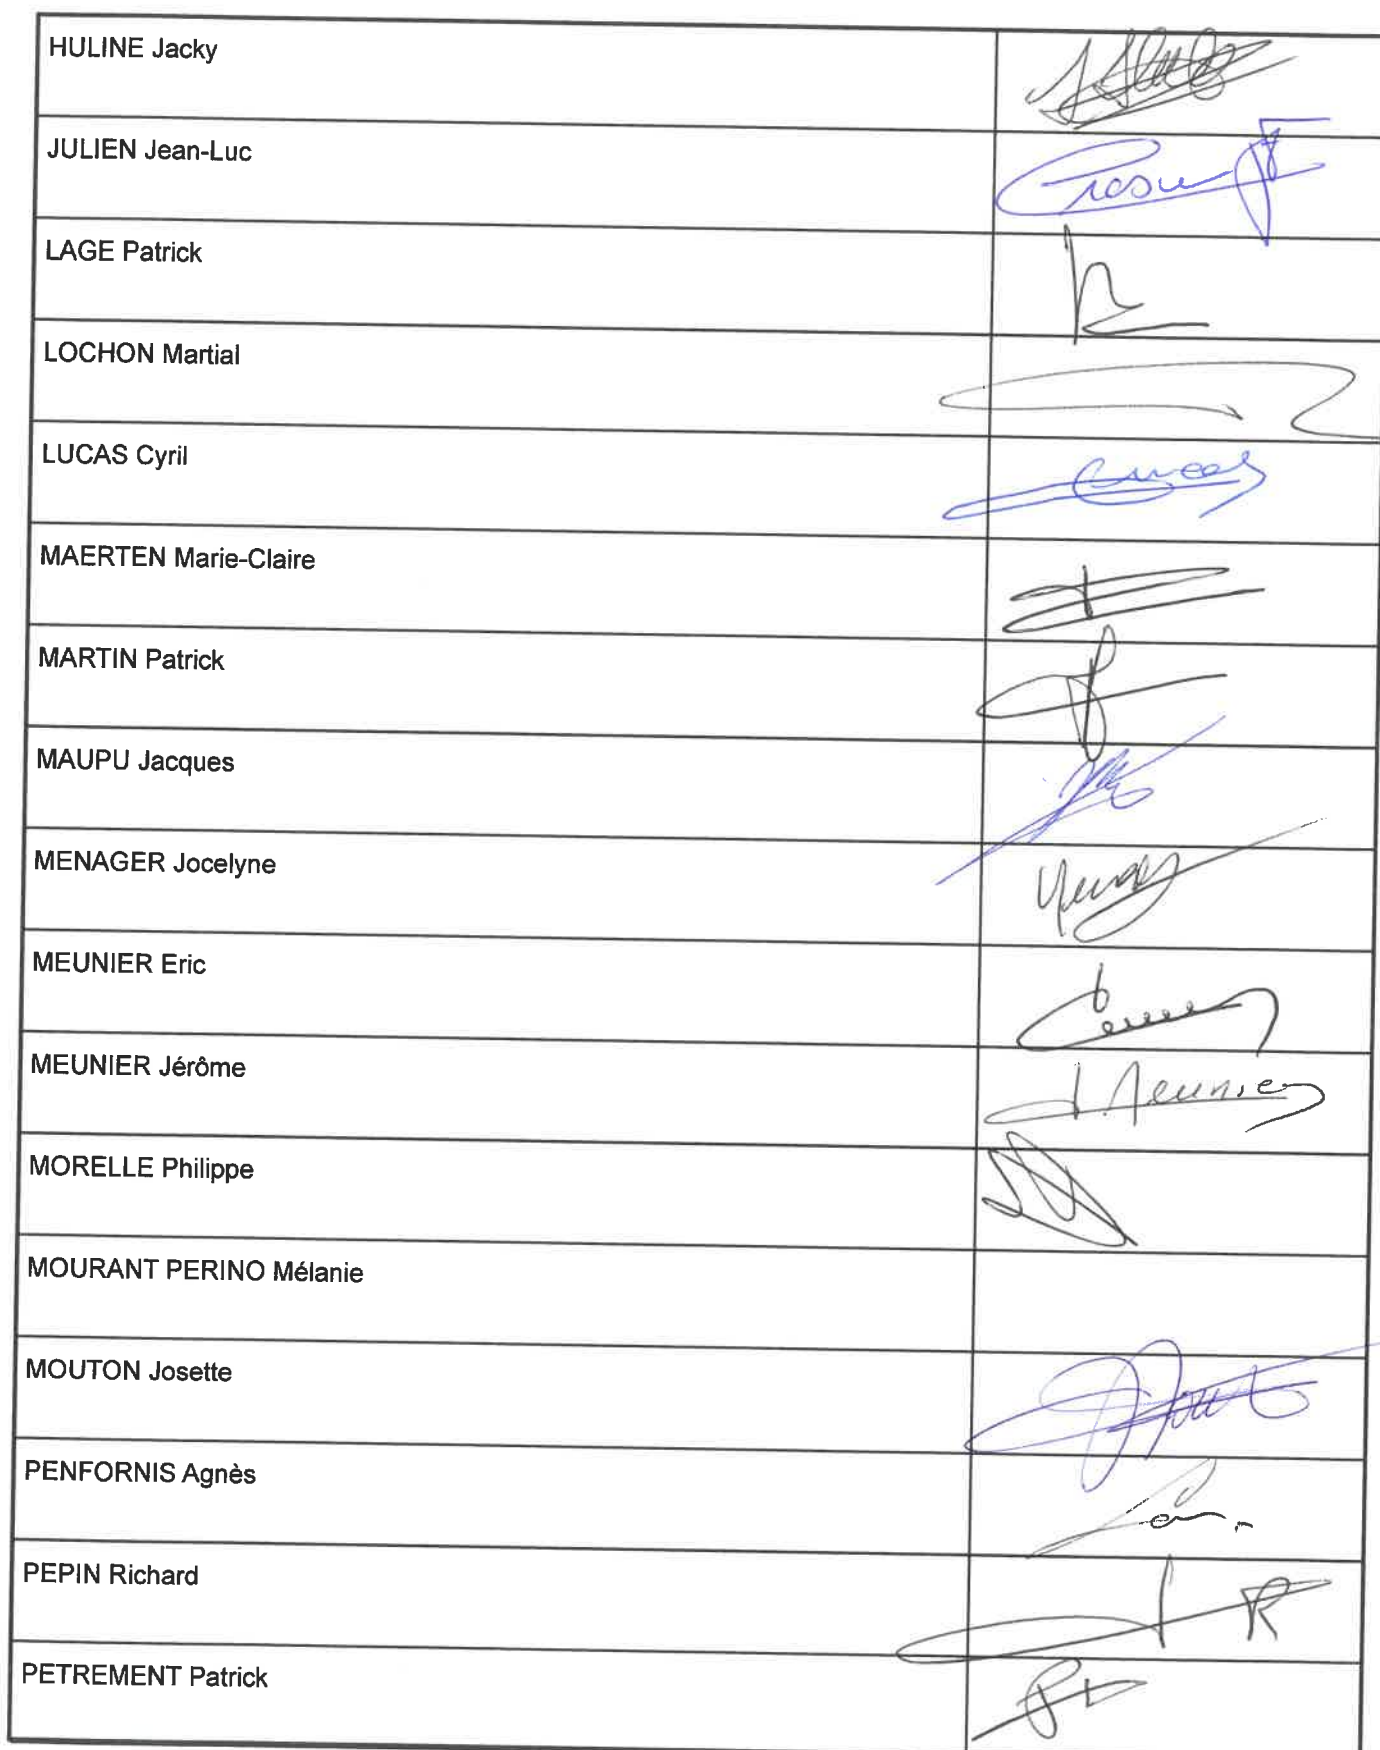 HULINE Jacky
JULIEN Jean-Luc
LAGE Patrick
LOCHON Martial
LUCAS Cyril
MAERTEN Marie-Claire
MARTIN Patrick
MAUPU Jacques
MENAGER Jocelyne
MEUNIER Eric
MEUNIER Jérôme
J. Meunier
MORELLE Philippe
MOURANT PERINO Mélanie
MOUTON Josette
PENFORNIS Agnès
PEPIN Richard
PETREMENT Patrick